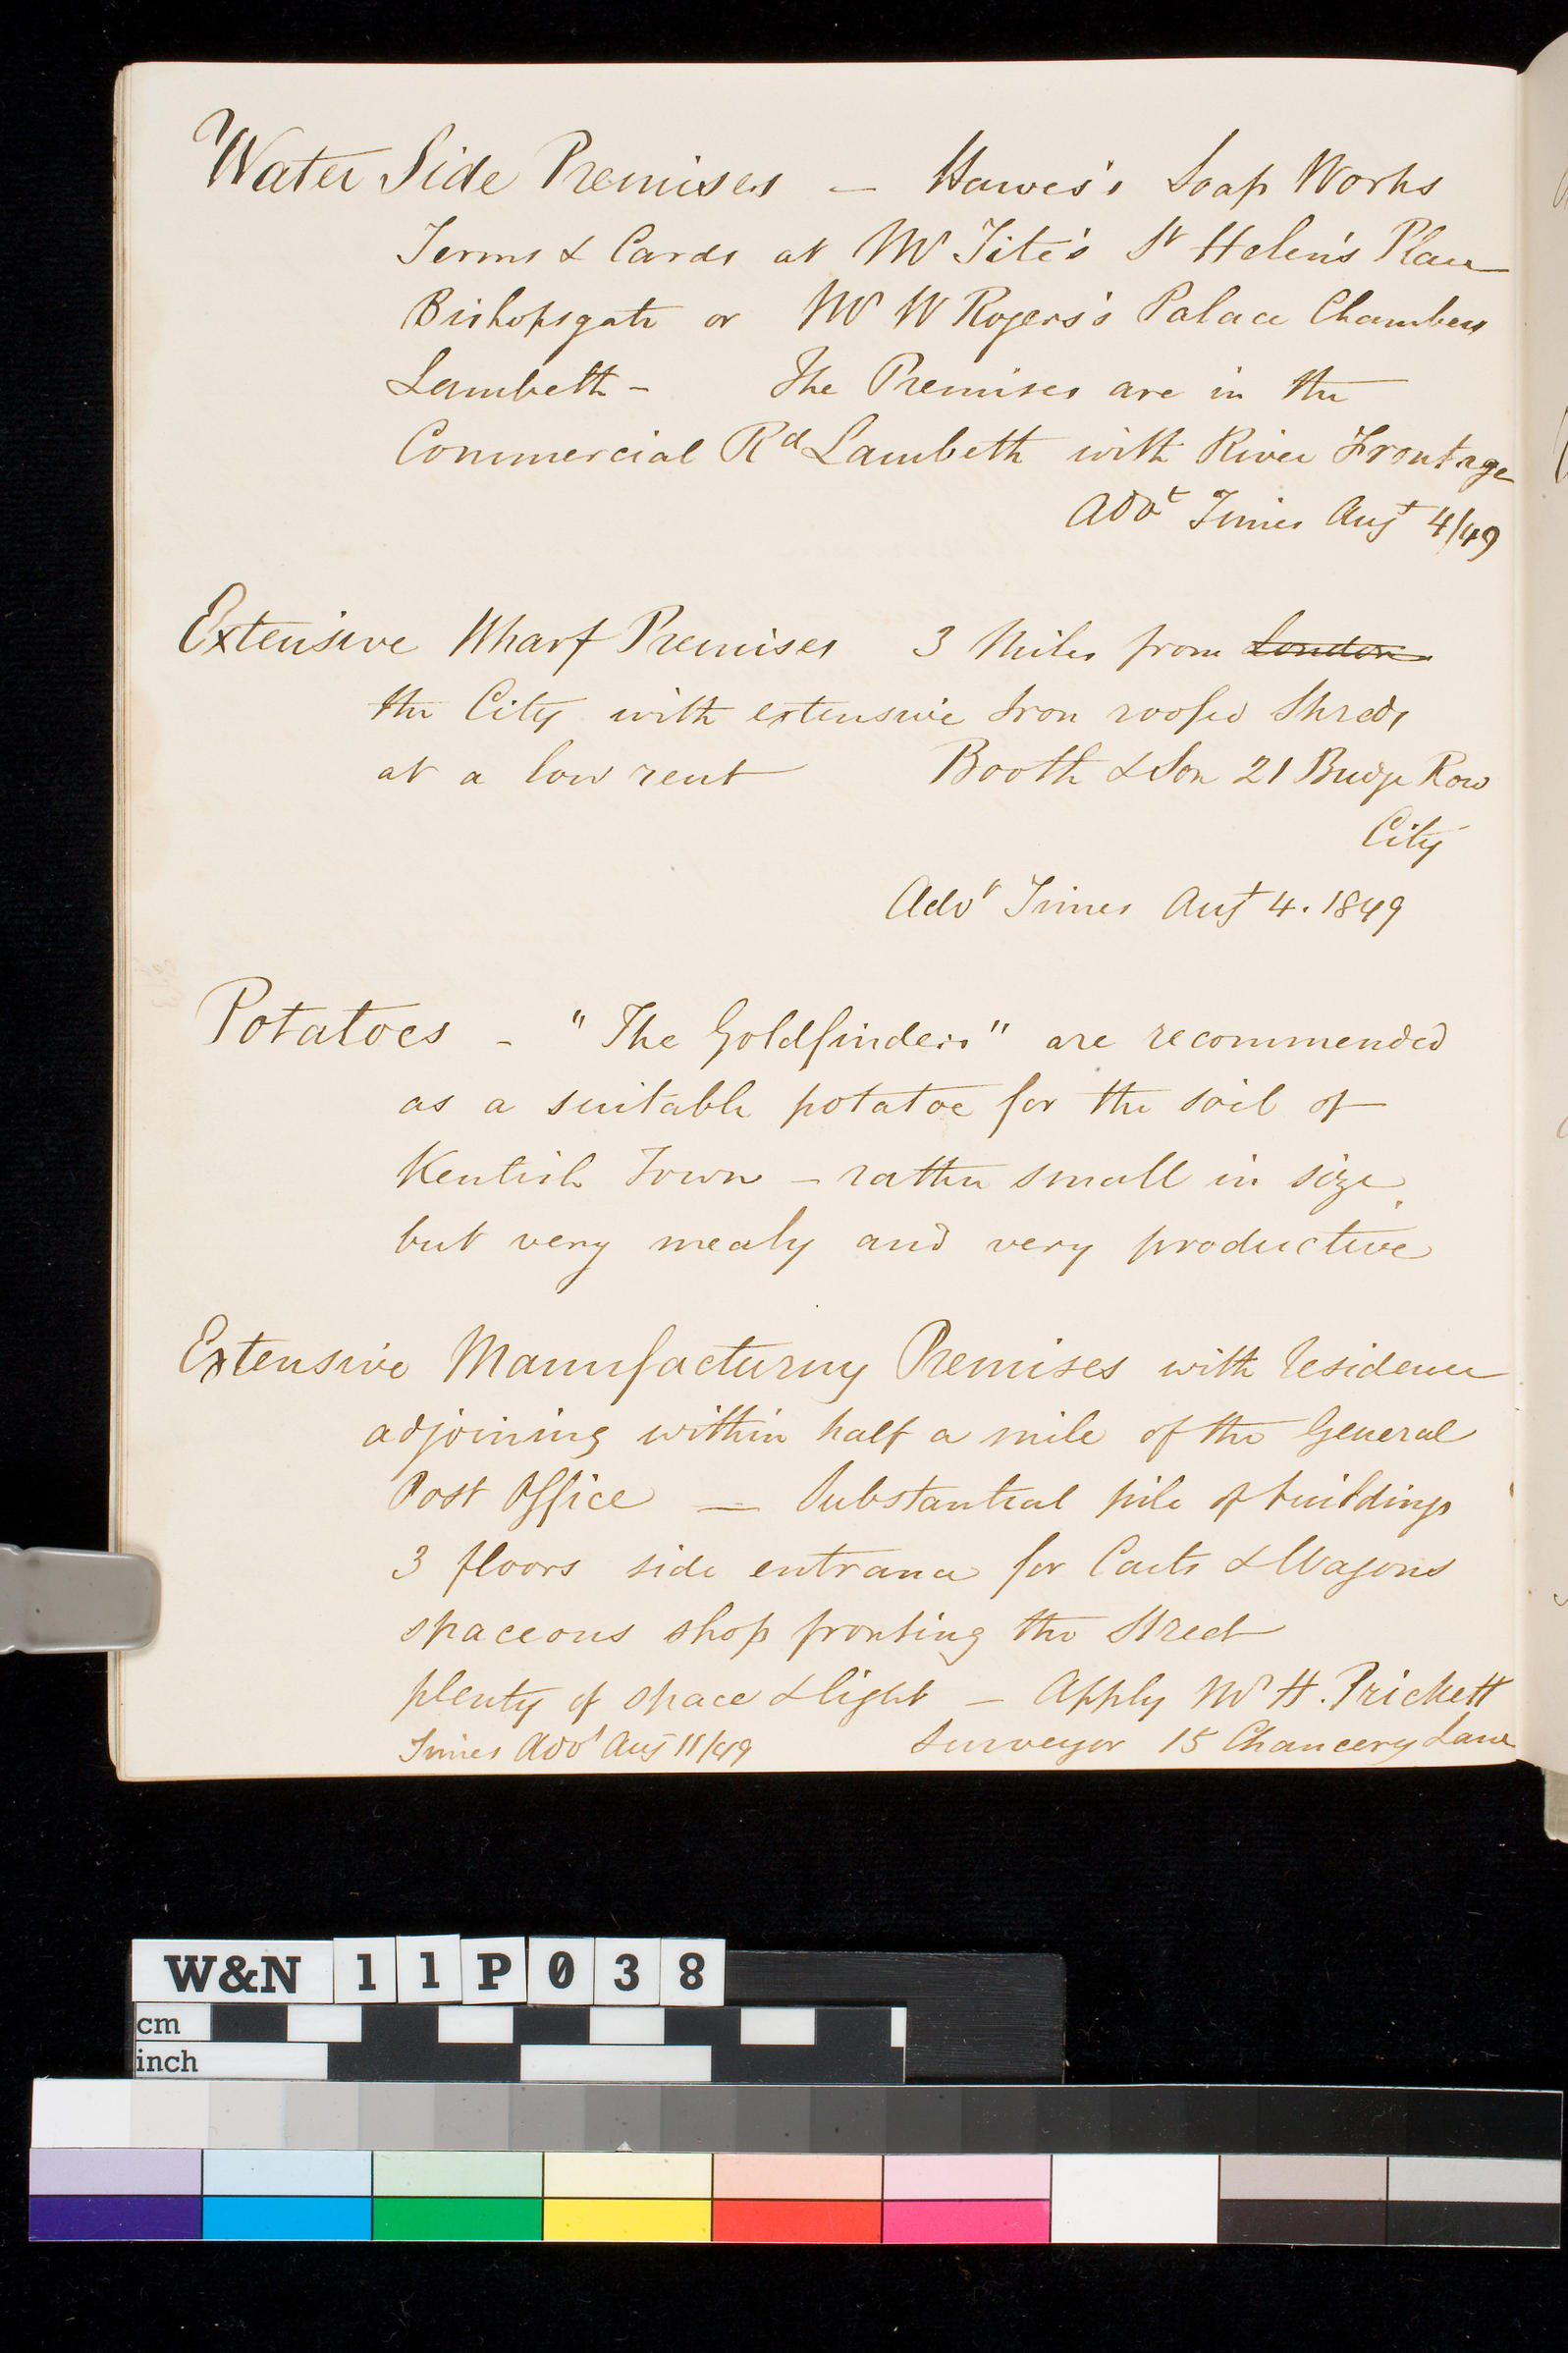 Water Side Premises — Hawes's Soap Works
Terms & Cards at Mr Tite's St Helen's Place
Bishopsgate or Mr W Rogers's Palace Chambers
Lambeth - The Premises are in the
Commercial Rd Lambeth with River Frontage
Advt Times Augt 4/49
Extensive Wharf Premises 3 Miles from London
the City with extensive Iron roofed Sheds
at a low rent Booth & Son 21 Budge Row
City
Advt Times Augt 4. 1849
Potatoes - "The Goldfinders" are recommended
as a suitable potatoe for the soil of
Kentish Town - rather small in size
but very mealy and very productive
Extensive Manufacturing Premises with residence
adjoining within half a mile of the General
Post Office — Substantial pile of buildings
3 floors side entrance for Carts & Wagons
spaceous shop fronting the Street
plenty of space & light — Apply Mr H. Prickett
Times Advt Aug 11/49 Surveyor 15 Chancery Lane
W&N 11P038
cm
inch